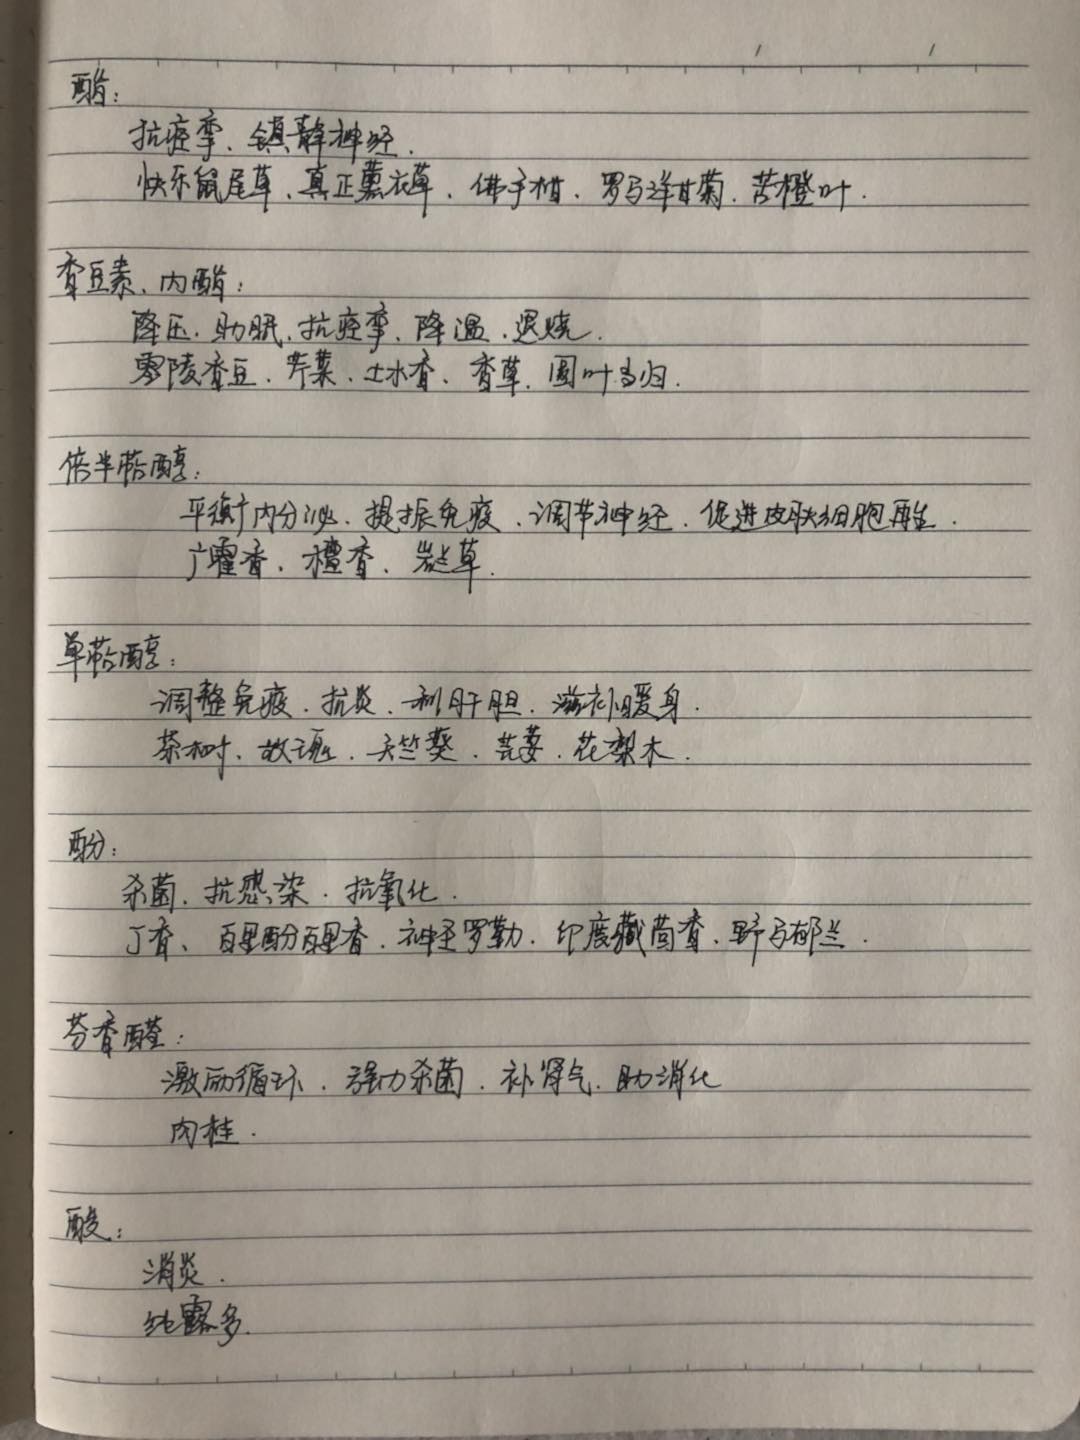 酯：
抗痉挛、镇静神经．
快乐鼠尾草、真正薰衣草、佛手柑、罗马洋甘菊．苦橙叶．
香豆素、内酯：
降压．助眠、抗痉挛、降温、退烧．
零陵香豆．芹菜、土木香、香草．圆叶当归．
倍半萜醇：
平衡内分泌、提振免疫、调节神经．促进皮肤细胞再生．
广霍香、檀香、岩兰草．
单萜醇：
调整免疫．抗炎．利肝胆．滋补暖身．
茶树、玫瑰．天竺葵．芫荽．花梨木．
酚：
杀菌．抗感染．抗氧化．
丁香、百里酚百里香．神圣罗勒．印度藏茴香、野马郁兰．
芳香醛：
激励循环．强力杀菌．补肾气．助消化
肉桂．
酸：
消炎．
纯露多．